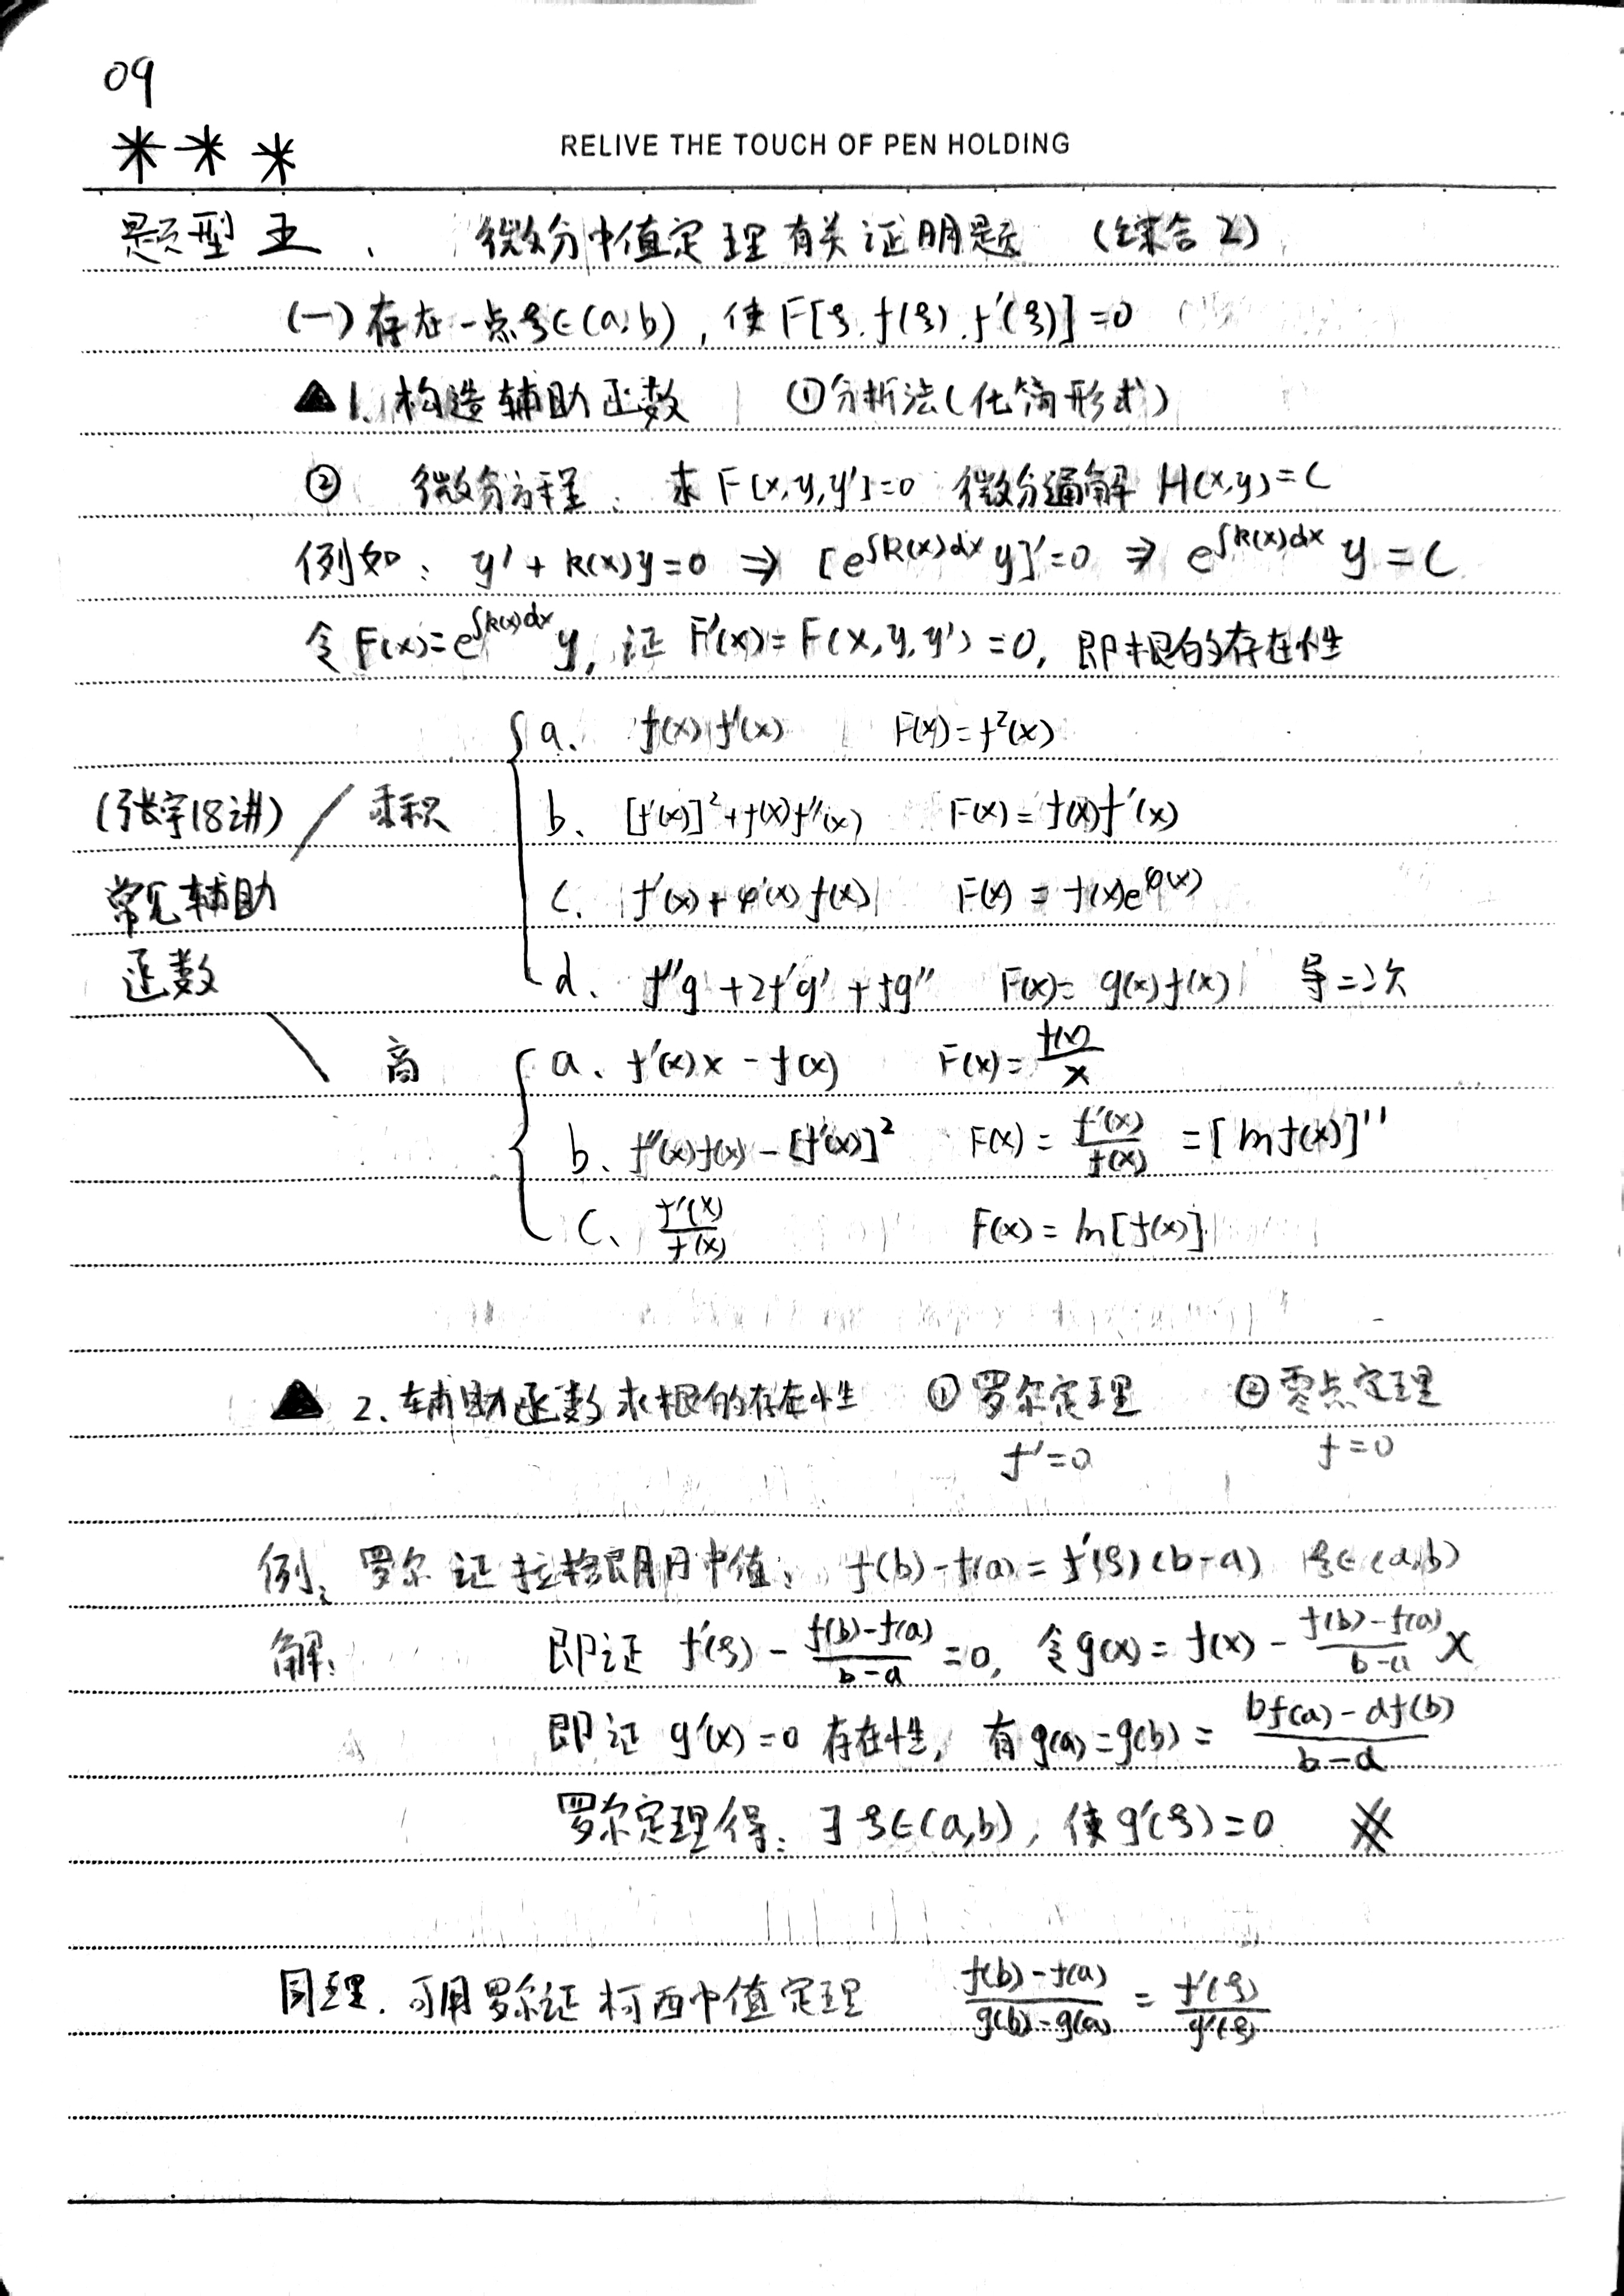 09
***
RELIVE THE TOUCH OF PEN HOLDING
题型五、 微分中值定理有关证明题 (综合2)
(一)存在一点ξ∈(a,b), 使F[ξ,f(ξ),f'(ξ)]=0
▲1.构造辅助函数 ①分析法(化简形式)
② 微分方程、求F[x,y,y']=0 微分通解 H(x,y)=C
例如: y'+k(x)y=0 ⇒ [e^{∫k(x)dx} y]'=0 ⇒ e^{∫k(x)dx} y=C
令F(x)=e^{∫k(x)dx} y, 证 F'(x)=F(x,y,y')=0, 即根的存在性
(张宇18讲) 常见辅助函数
乘积
a、 f(x)f'(x) F(x)=f²(x)
b、 [f'(x)]²+f(x)f''(x) F(x)=f(x)f'(x)
c. f'(x)+φ'(x)f(x) F(x)=f(x)e^{φ(x)}
d、 f''g+2f'g'+fg'' F(x)=g(x)f(x) 导二次
商
a、f'(x)x-f(x) F(x)=f(x)/x
b、f''(x)f(x)-[f'(x)]² F(x)=f'(x)/f(x) =[ln f(x)]''
c、 f'(x)/f(x) F(x)=ln[f(x)]
▲ 2.辅助函数求根的存在性 ①罗尔定理 ②零点定理
f'=0 f=0
例: 罗尔证拉格朗日中值: f(b)-f(a)=f'(ξ)(b-a) ξ∈(a,b)
解: 即证 f'(ξ)-(f(b)-f(a))/(b-a)=0, 令g(x)=f(x)-(f(b)-f(a))/(b-a) x
即证 g'(x)=0 存在性, 有g(a)=g(b)=(bf(a)-af(b))/(b-a)
罗尔定理得: ∃ξ∈(a,b), 使g'(ξ)=0
同理. 可用罗尔证柯西中值定理 (f(b)-f(a))/(g(b)-g(a))=f'(ξ)/g'(ξ)